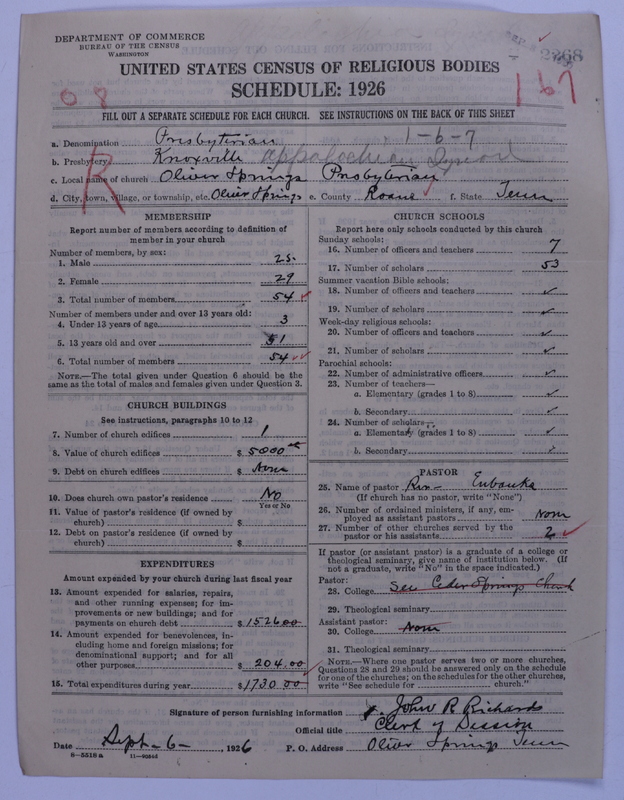 DEPARTMENT OF COMMERCE
BUREAU OF THE CENSUS
WASHINGTON
2268
UNITED STATES CENSUS OF RELIGIOUS BODIES
SCHEDULE: 1926
0 8
167
FILL OUT A SEPARATE SCHEDULE FOR EACH CHURCH. SEE INSTRUCTIONS ON THE BACK OF THIS SHEET
1-6-7
a. Denomination Presbyterian
b. Presbytery Knoxville Appalachian Synod
c. Local name of church Oliver Springs Presbyterian
d. City, town, village, or township, etc. Oliver Springs e. County Roane f. State Tenn
R
MEMBERSHIP
Report number of members according to definition of
member in your church
Number of members, by sex:
1. Male 25
2. Female 29
3. Total number of members 54 ✓
Number of members under and over 13 years old:
4. Under 13 years of age 3
5. 13 years old and over 51
6. Total number of members 54 ✓✓
NOTE.—The total given under Question 6 should be the
same as the total of males and females given under Question 3.
CHURCH BUILDINGS
See instructions, paragraphs 10 to 12
7. Number of church edifices 1
8. Value of church edifices $ 5000
9. Debt on church edifices $ None
10. Does church own pastor's residence No
Yes or No
11. Value of pastor's residence (if owned by
church) $
12. Debt on pastor's residence (if owned by
church) $
EXPENDITURES
Amount expended by your church during last fiscal year
13. Amount expended for salaries, repairs,
and other running expenses; for im-
provements or new buildings; and for
payments on church debt $ 1526.00
14. Amount expended for benevolences, in-
cluding home and foreign missions; for
denominational support; and for all
other purposes $ 204.00
15. Total expenditures during year $ 1730.00
CHURCH SCHOOLS
Report here only schools conducted by this church
Sunday schools:
16. Number of officers and teachers 7
17. Number of scholars 53
Summer vacation Bible schools:
18. Number of officers and teachers ✓
19. Number of scholars ✓
Week-day religious schools:
20. Number of officers and teachers ✓
21. Number of scholars ✓
Parochial schools:
22. Number of administrative officers ✓
23. Number of teachers—
a. Elementary (grades 1 to 8) ✓
b. Secondary ✓
24. Number of scholars—
a. Elementary (grades 1 to 8) ✓
b. Secondary
PASTOR
25. Name of pastor Eubanks
(If church has no pastor, write "None")
26. Number of ordained ministers, if any, em-
ployed as assistant pastors None
27. Number of other churches served by the
pastor or his assistants 2 ✓
If pastor (or assistant pastor) is a graduate of a college or
theological seminary, give name of institution below. (If
not a graduate, write "No" in the space indicated.)
Pastor:
28. College See Ceder Springs Church
29. Theological seminary
Assistant pastor:
30. College None
31. Theological seminary
NOTE.—Where one pastor serves two or more churches,
Questions 28 and 29 should be answered only on the schedule
for one of the churches; on the schedules for the other churches,
write "See schedule for church."
Signature of person furnishing information John R Richards
Official title Clerk of Session
Date Sept-6- 1926 P. O. Address Oliver Springs Tenn
8-5518 a